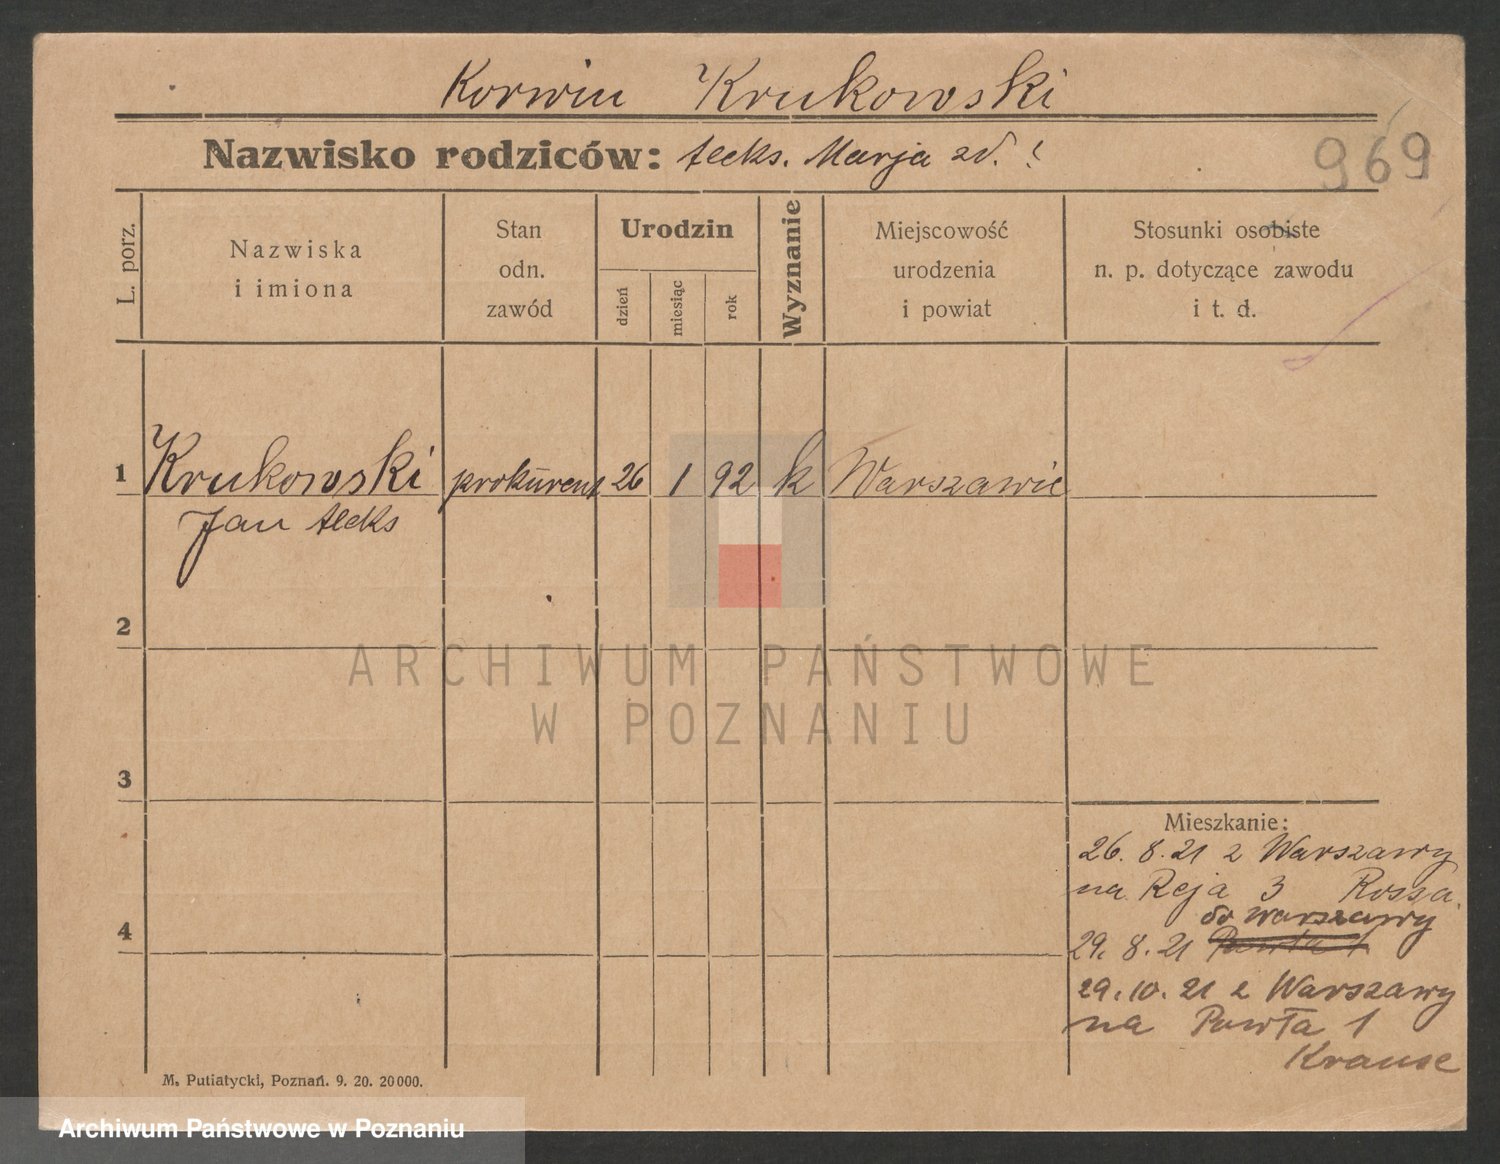 Korwin Krukowski
Nazwisko rodziców: Aleks. Marja zd. ?
969
L. porz.
Nazwiska
i imiona
Stan
odn.
zawód
Urodzin
dzień
miesiąc
rok
Wyznanie
Miejscowość
urodzenia
i powiat
Stosunki osobiste
n. p. dotyczące zawodu
i t. d.
1 Krukowski prokurent 26 1 92 k Warszawie
Jan Aleks
2
3
4
Mieszkanie:
26. 8. 21 z Warszawy
na Reja 3 Rossa.
do Warszawy
29. 8. 21 Pawła 1
29. 10. 21 z Warszawy
na Pawła 1
Krause
M. Putiatycki, Poznań. 9. 20. 20000.
ARCHIWUM PAŃSTWOWE
W POZNANIU
Archiwum Państwowe w Poznaniu